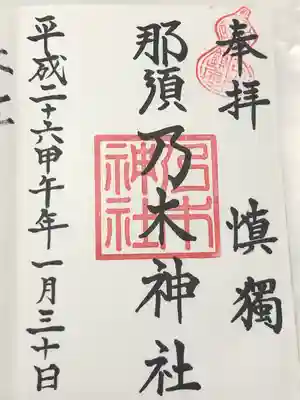 奉拝　慎獨
那須乃木神社
平成二十六甲午年一月三十日
乃木神社